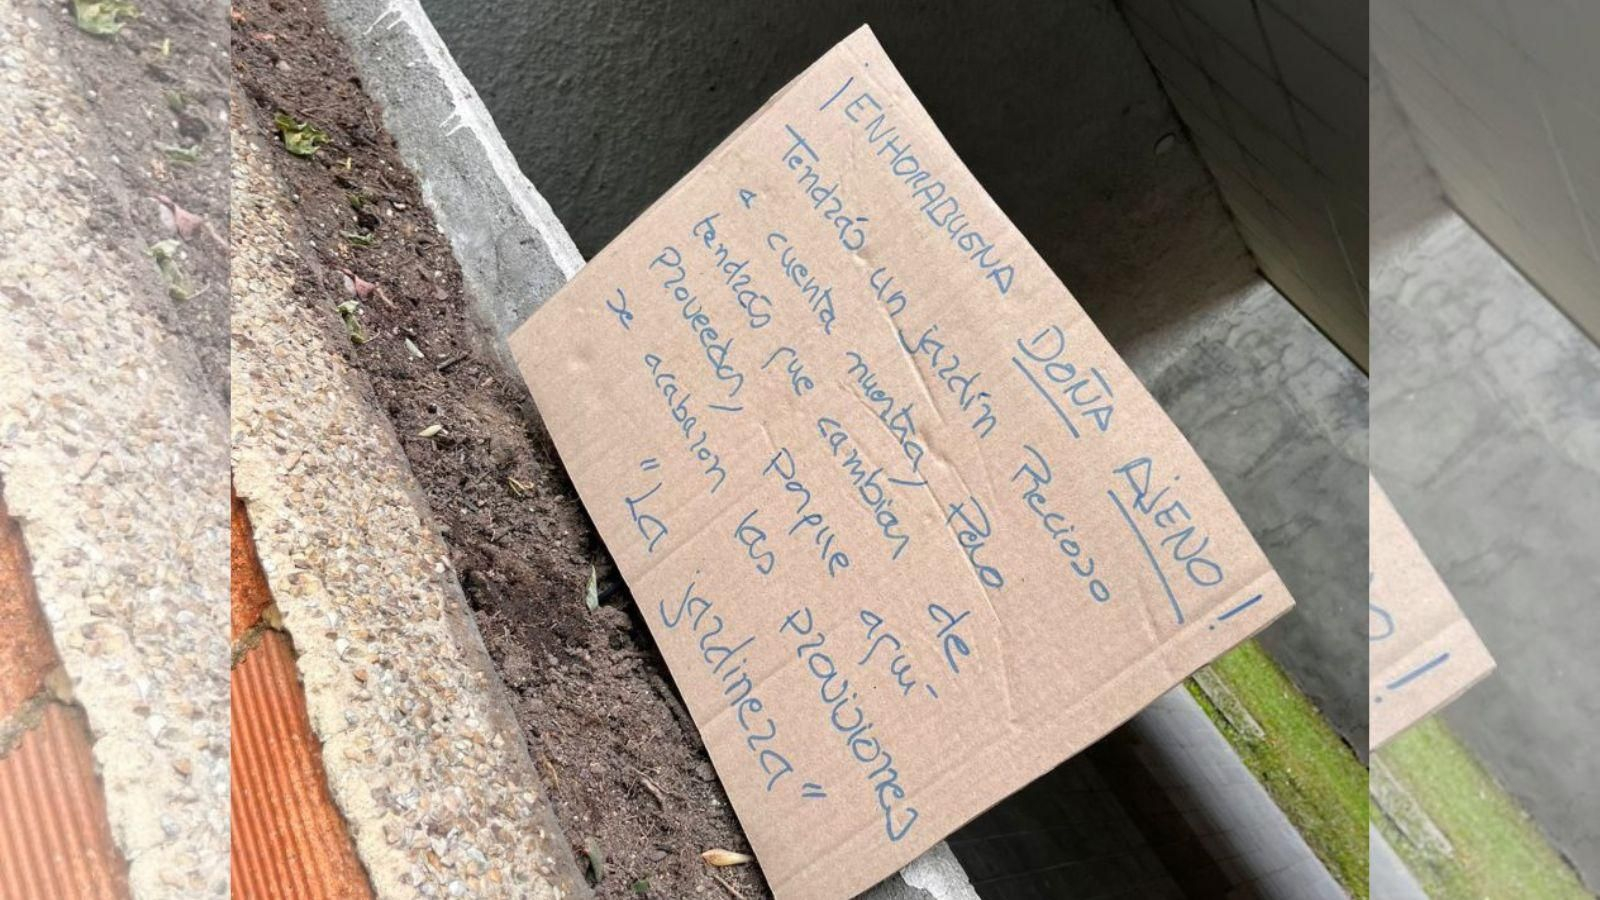 ¡ENHORABUENA DOÑA AJENO!
Tendrás un jardín Precioso
a cuenta nuestra, Pero
tendrás que cambiar de
proveedor, porque aquí
se acabaron las provisiones
"La jardinera"